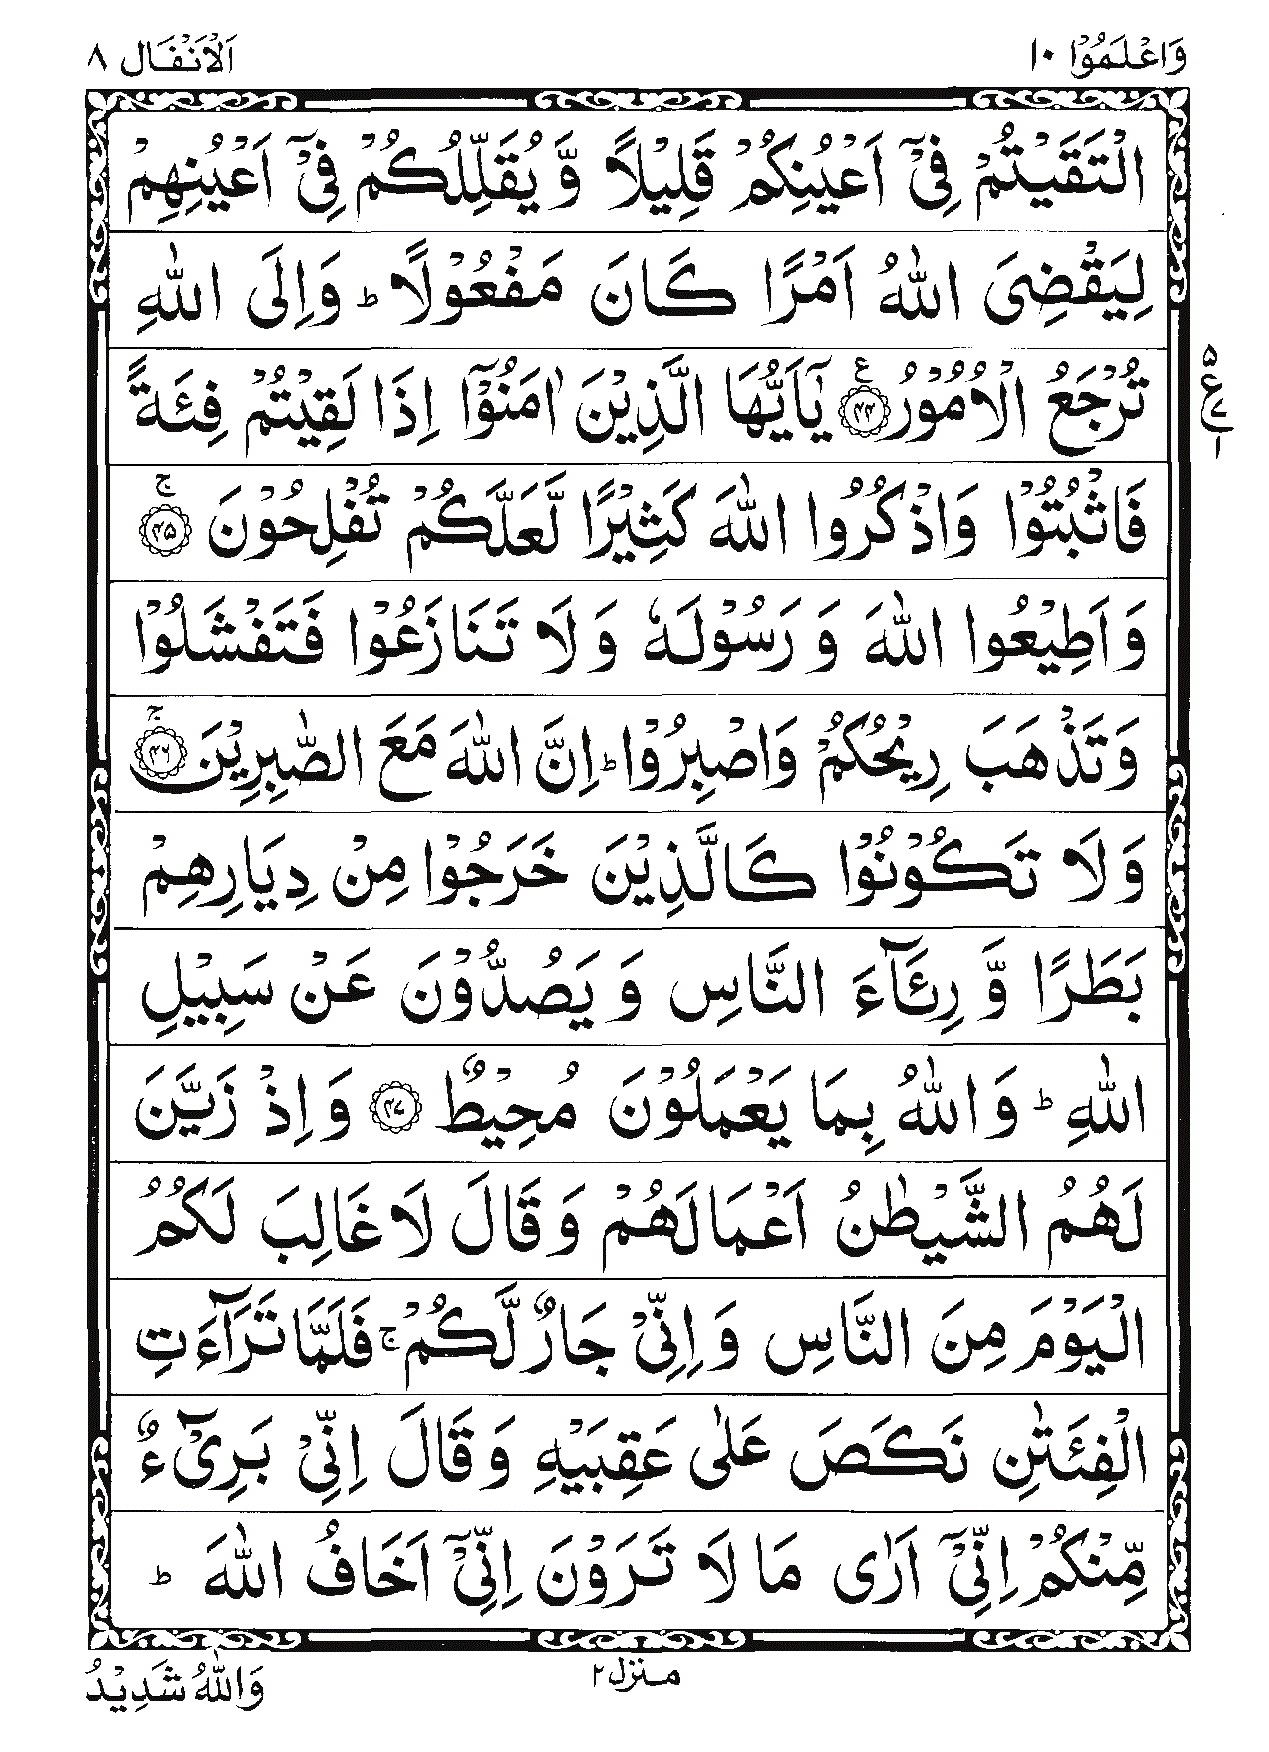 وَاعْلَمُوْۤا ۱۰
اَلْاَنْفَال ۸
الْتَقَيْتُمْ فِیْۤ اَعْيُنِكُمْ قَلِيْلًا وَّ يُقَلِّلُكُمْ فِیْۤ اَعْيُنِهِمْ
لِيَقْضِیَ اللّٰهُ اَمْرًا كَانَ مَفْعُوْلًا ؕ وَاِلَی اللّٰهِ
تُرْجَعُ الْاُمُوْرُ ۴۴ ع يٰۤاَيُّهَا الَّذِيْنَ اٰمَنُوْۤا اِذَا لَقِيْتُمْ فِئَةً
۵ ع ۷ ۱
فَاثْبُتُوْا وَاذْكُرُوا اللّٰهَ كَثِيْرًا لَّعَلَّكُمْ تُفْلِحُوْنَ ۴۵ ۚ
وَ اَطِيْعُوا اللّٰهَ وَ رَسُوْلَهٗ وَ لَا تَنَازَعُوْا فَتَفْشَلُوْا
وَتَذْهَبَ رِيْحُكُمْ وَاصْبِرُوْا ؕ اِنَّ اللّٰهَ مَعَ الصّٰبِرِيْنَ ۴۶ ۚ
وَ لَا تَكُوْنُوْا كَالَّذِيْنَ خَرَجُوْا مِنْ دِيَارِهِمْ
بَطَرًا وَّ رِئَآءَ النَّاسِ وَ يَصُدُّوْنَ عَنْ سَبِيْلِ
اللّٰهِ ؕ وَ اللّٰهُ بِمَا يَعْمَلُوْنَ مُحِيْطٌ ۴۷ وَ اِذْ زَيَّنَ
لَهُمُ الشَّيْطٰنُ اَعْمَالَهُمْ وَ قَالَ لَا غَالِبَ لَكُمُ
الْيَوْمَ مِنَ النَّاسِ وَ اِنِّیْ جَارٌ لَّكُمْ ۚ فَلَمَّا تَرَآءَتِ
الْفِئَتٰنِ نَكَصَ عَلٰی عَقِبَيْهِ وَ قَالَ اِنِّیْ بَرِیْٓءٌ
مِّنْكُمْ اِنِّیْۤ اَرٰی مَا لَا تَرَوْنَ اِنِّیْۤ اَخَافُ اللّٰهَ ؕ
منزل ۲
وَاللّٰهُ شَدِيْدُ